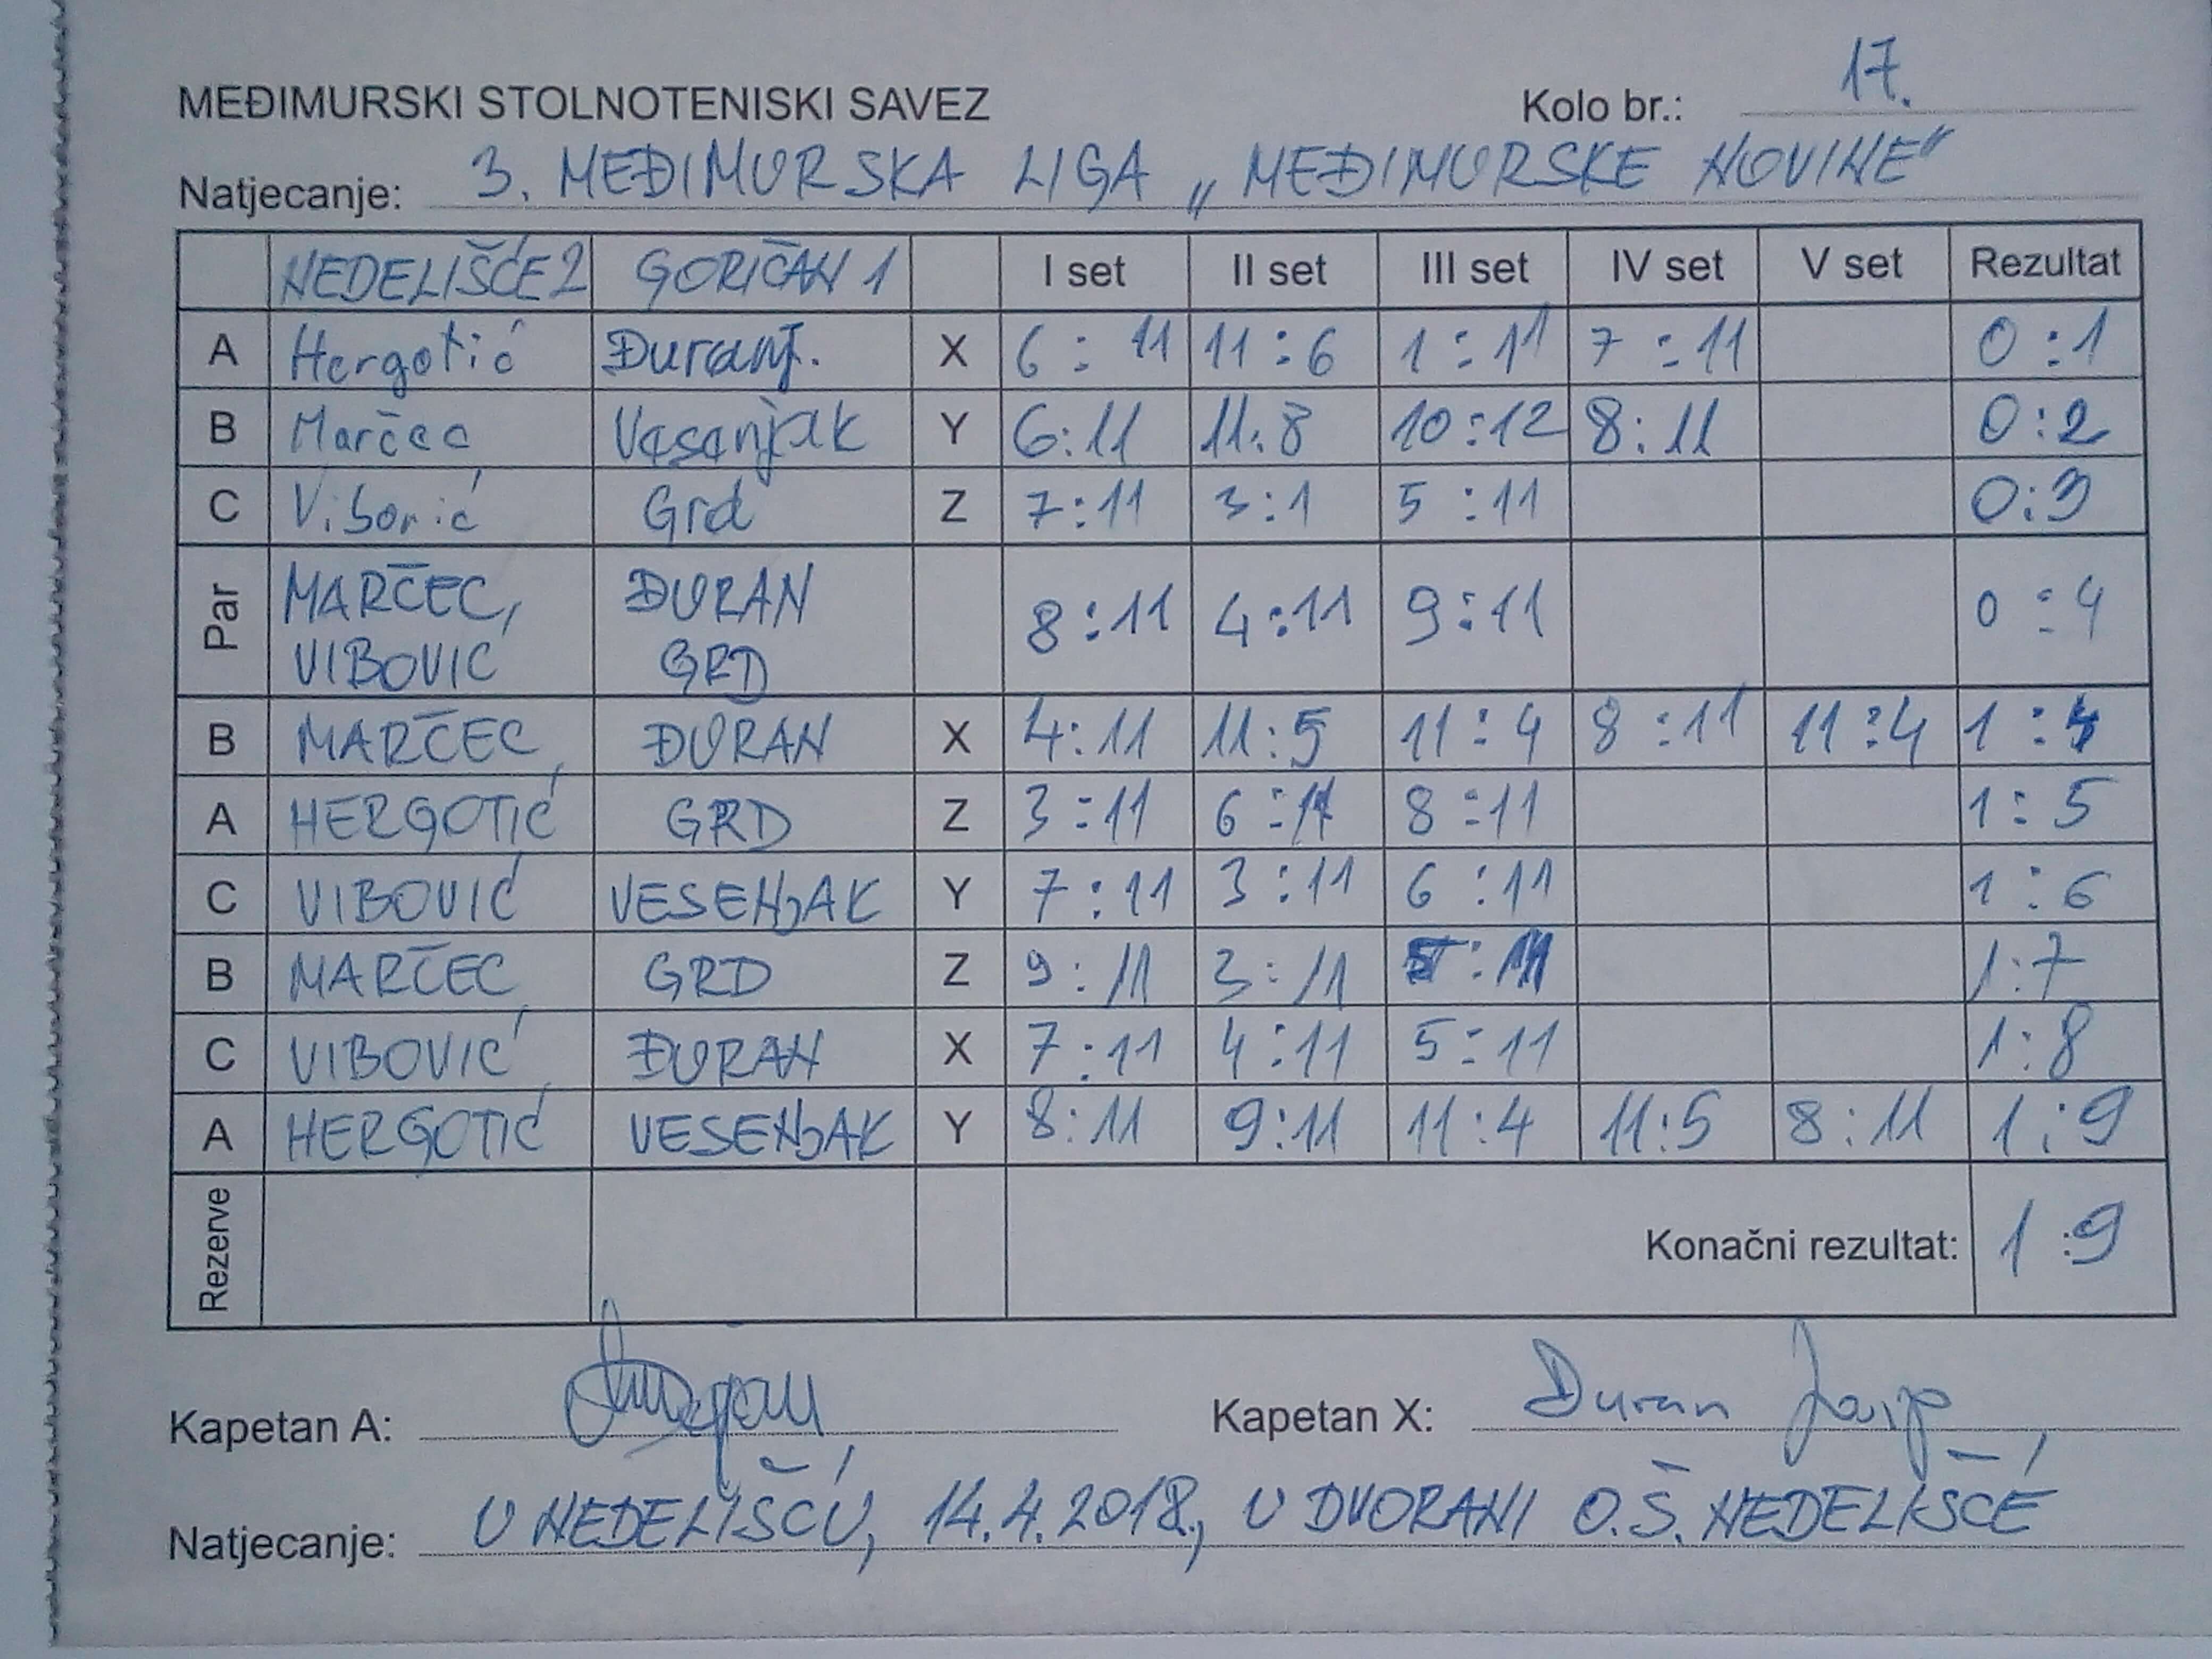 MEĐIMURSKI STOLNOTENISKI SAVEZ Kolo br.: 17.
Natjecanje: 3. MEĐIMURSKA LIGA „MEĐIMURSKE NOVINE"
NEDELIŠĆE 2 GORIČAN 1 I set II set III set IV set V set Rezultat
A Hergotić Đuranj. X 6 : 11 11 : 6 1 : 11 7 : 11 0 : 1
B Marčec Vasanjak Y 6:11 11:8 10:12 8:11 0:2
C Viborić Grd Z 7:11 3:1 5 :11 0:3
Par MARČEC, ĐURAN 8:11 4:11 9:11 0 : 4
VIBOVIC GRD
B MARČEC ĐURAN X 4:11 11:5 11:4 8:11 11:4 1 : 4
A HERGOTIĆ GRD Z 3:11 6:11 8:11 1 : 5
C VIBOVIĆ VESENJAK Y 7:11 3:11 6:11 1 : 6
B MARČEC GRD Z 9:11 3:11 5:11 1:7
C VIBOVIĆ ĐURAN X 7:11 4:11 5:11 1:8
A HERGOTIĆ VESENJAK Y 8:11 9:11 11:4 11:5 8:11 1:9
Rezerve Konačni rezultat: 1:9
Kapetan A: Kapetan X: Duran
Natjecanje: U NEDELIŠĆU, 14.4.2018., U DVORANI O.Š. NEDELIŠĆE